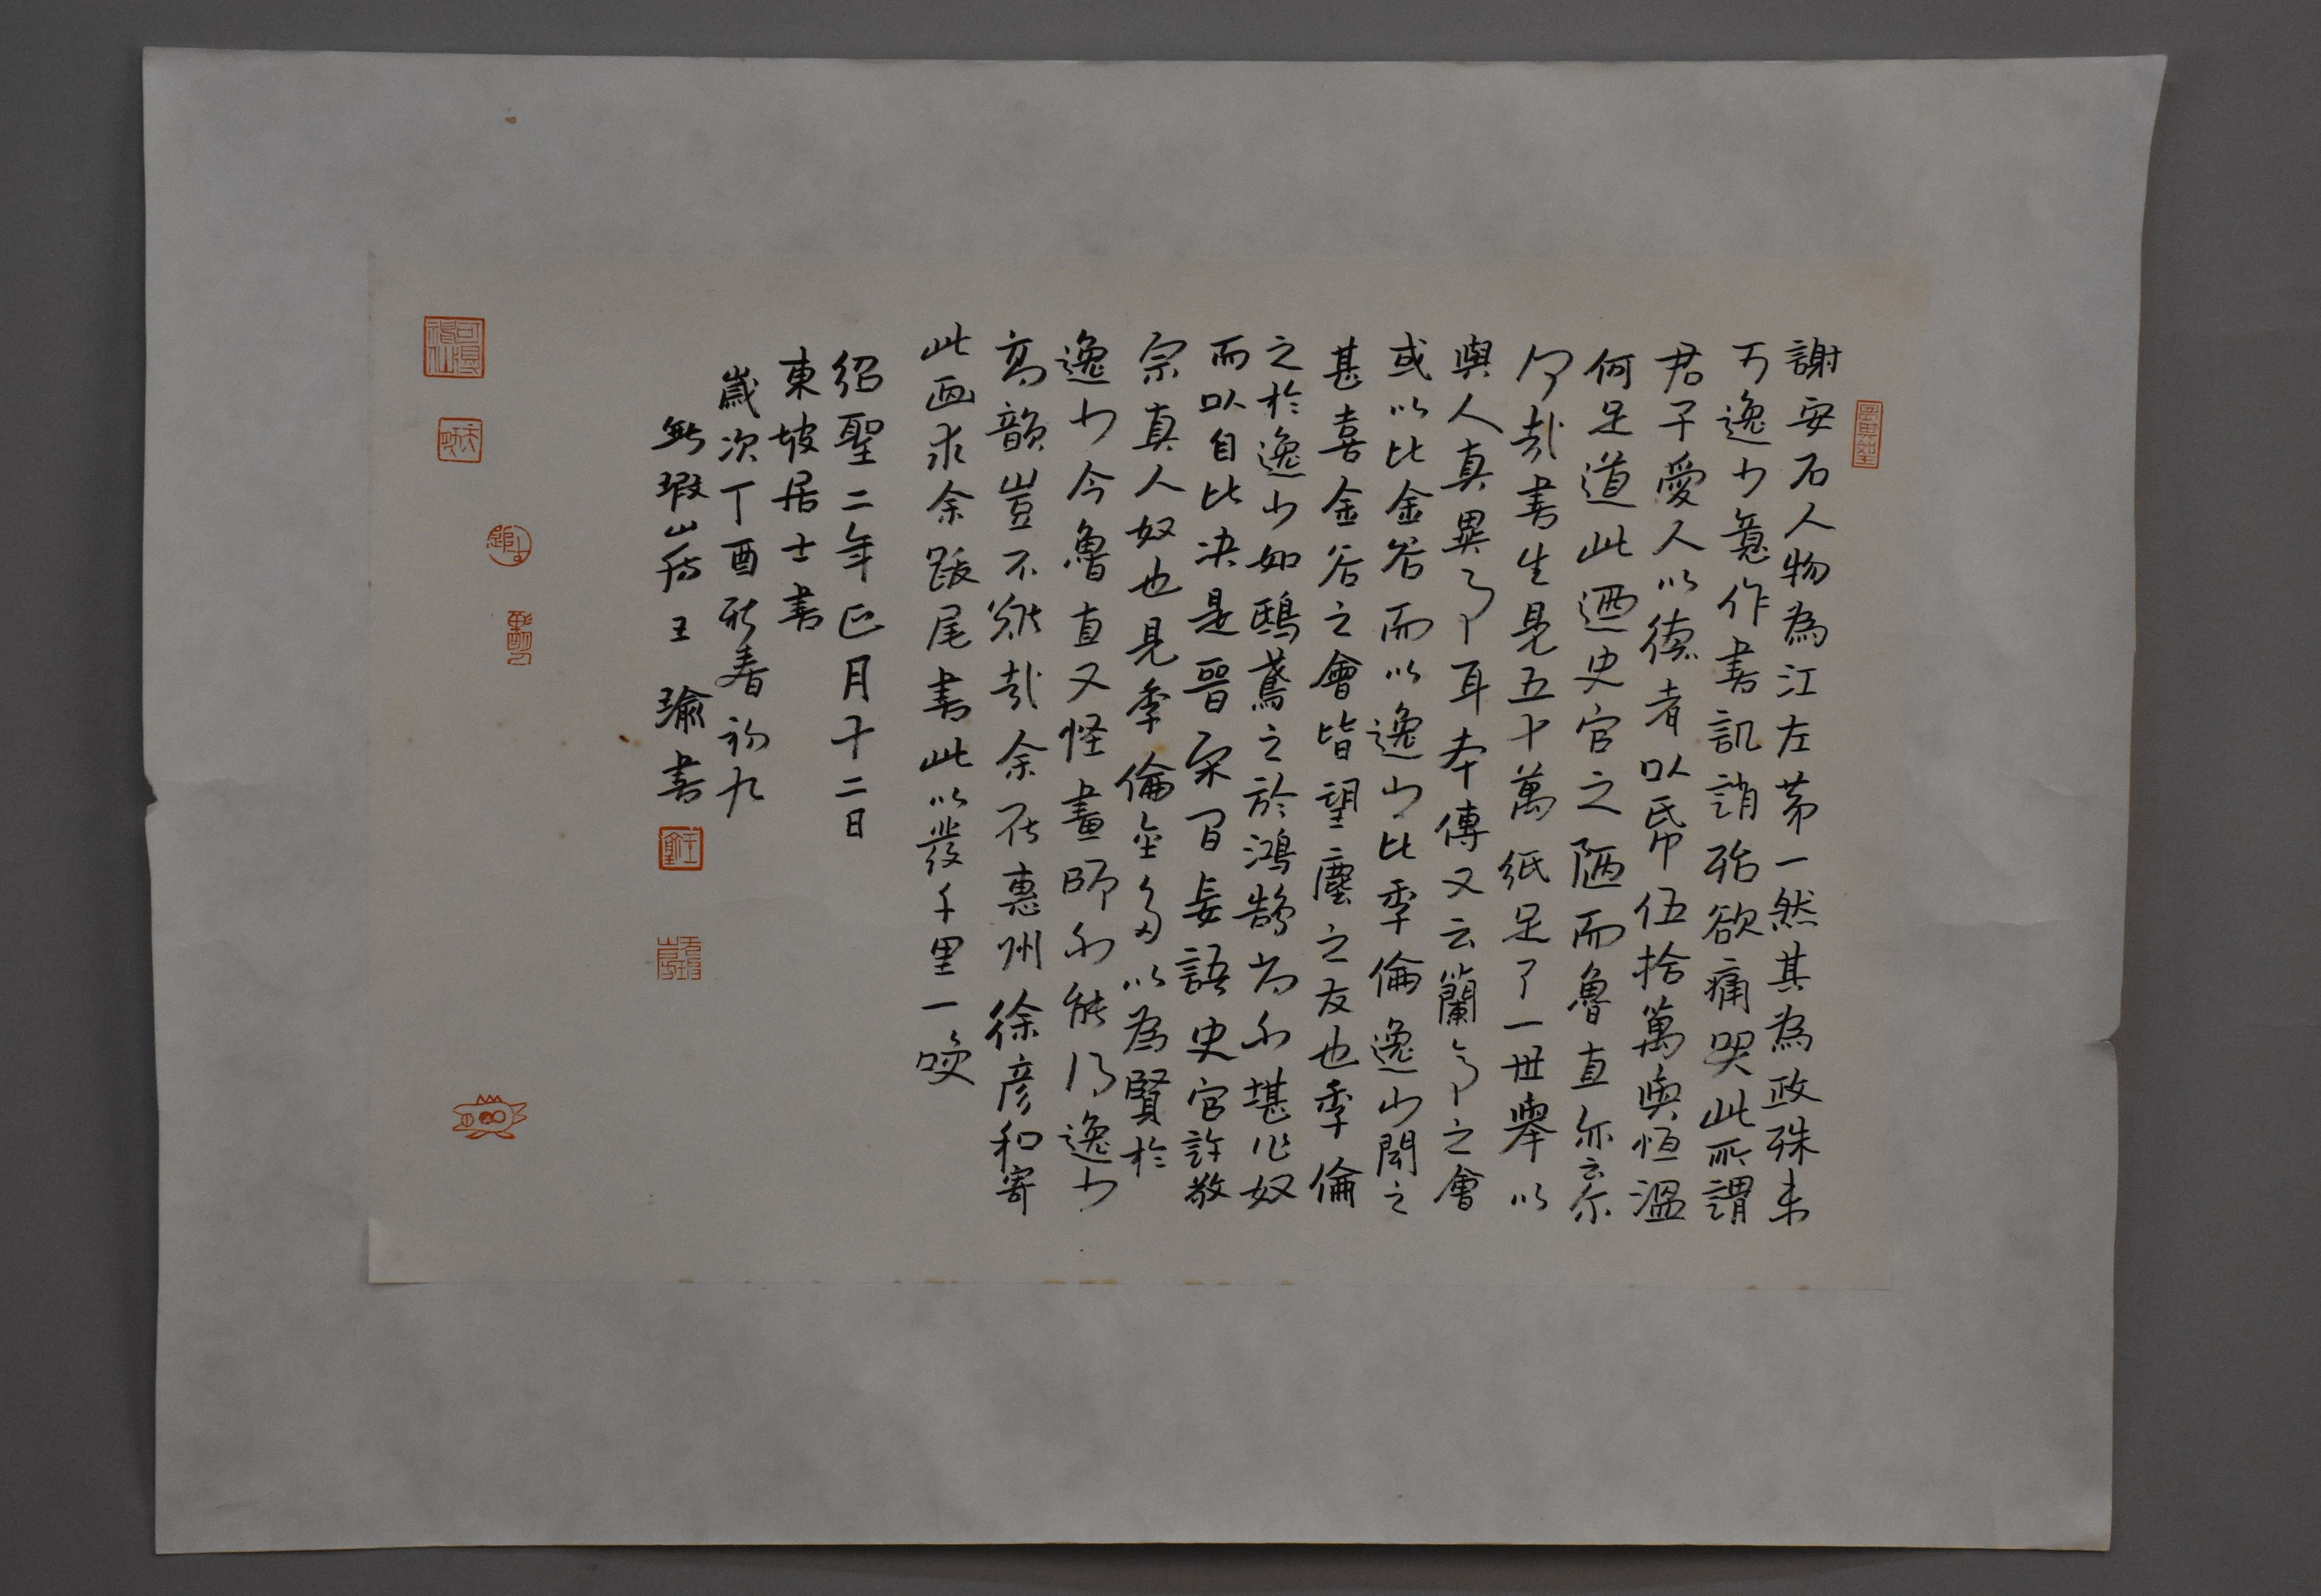 謝安石人物為江左苐一然其為政殊未
可逸少意作書訊誚殆欲痛哭此所謂
君子愛人以德者以㡳伍拾萬與恒溫
何足道此迺史官之陋而魯直亦云尔
何哉書生見五十萬紙足了一世舉以
與人真異事耳本傳又云蘭亭之會
或以比金谷而以逸少比季倫逸少聞之
甚喜金谷之會皆望塵之友也季倫
之於逸少如鴟鳶之於鴻鵠尚不堪作奴
而以自比決是晉宋間妄語史官許敬
宗真人奴也見季倫金多以為賢於
逸少今魯直又怪畫師不能得逸少
高韻豈不難哉余在惠州徐彥和寄
此画求余跋尾書此以發千里一咲
紹聖二年正月十二日
東坡居士書
歲次丁酉新春初九
無瑕山房王瑜書